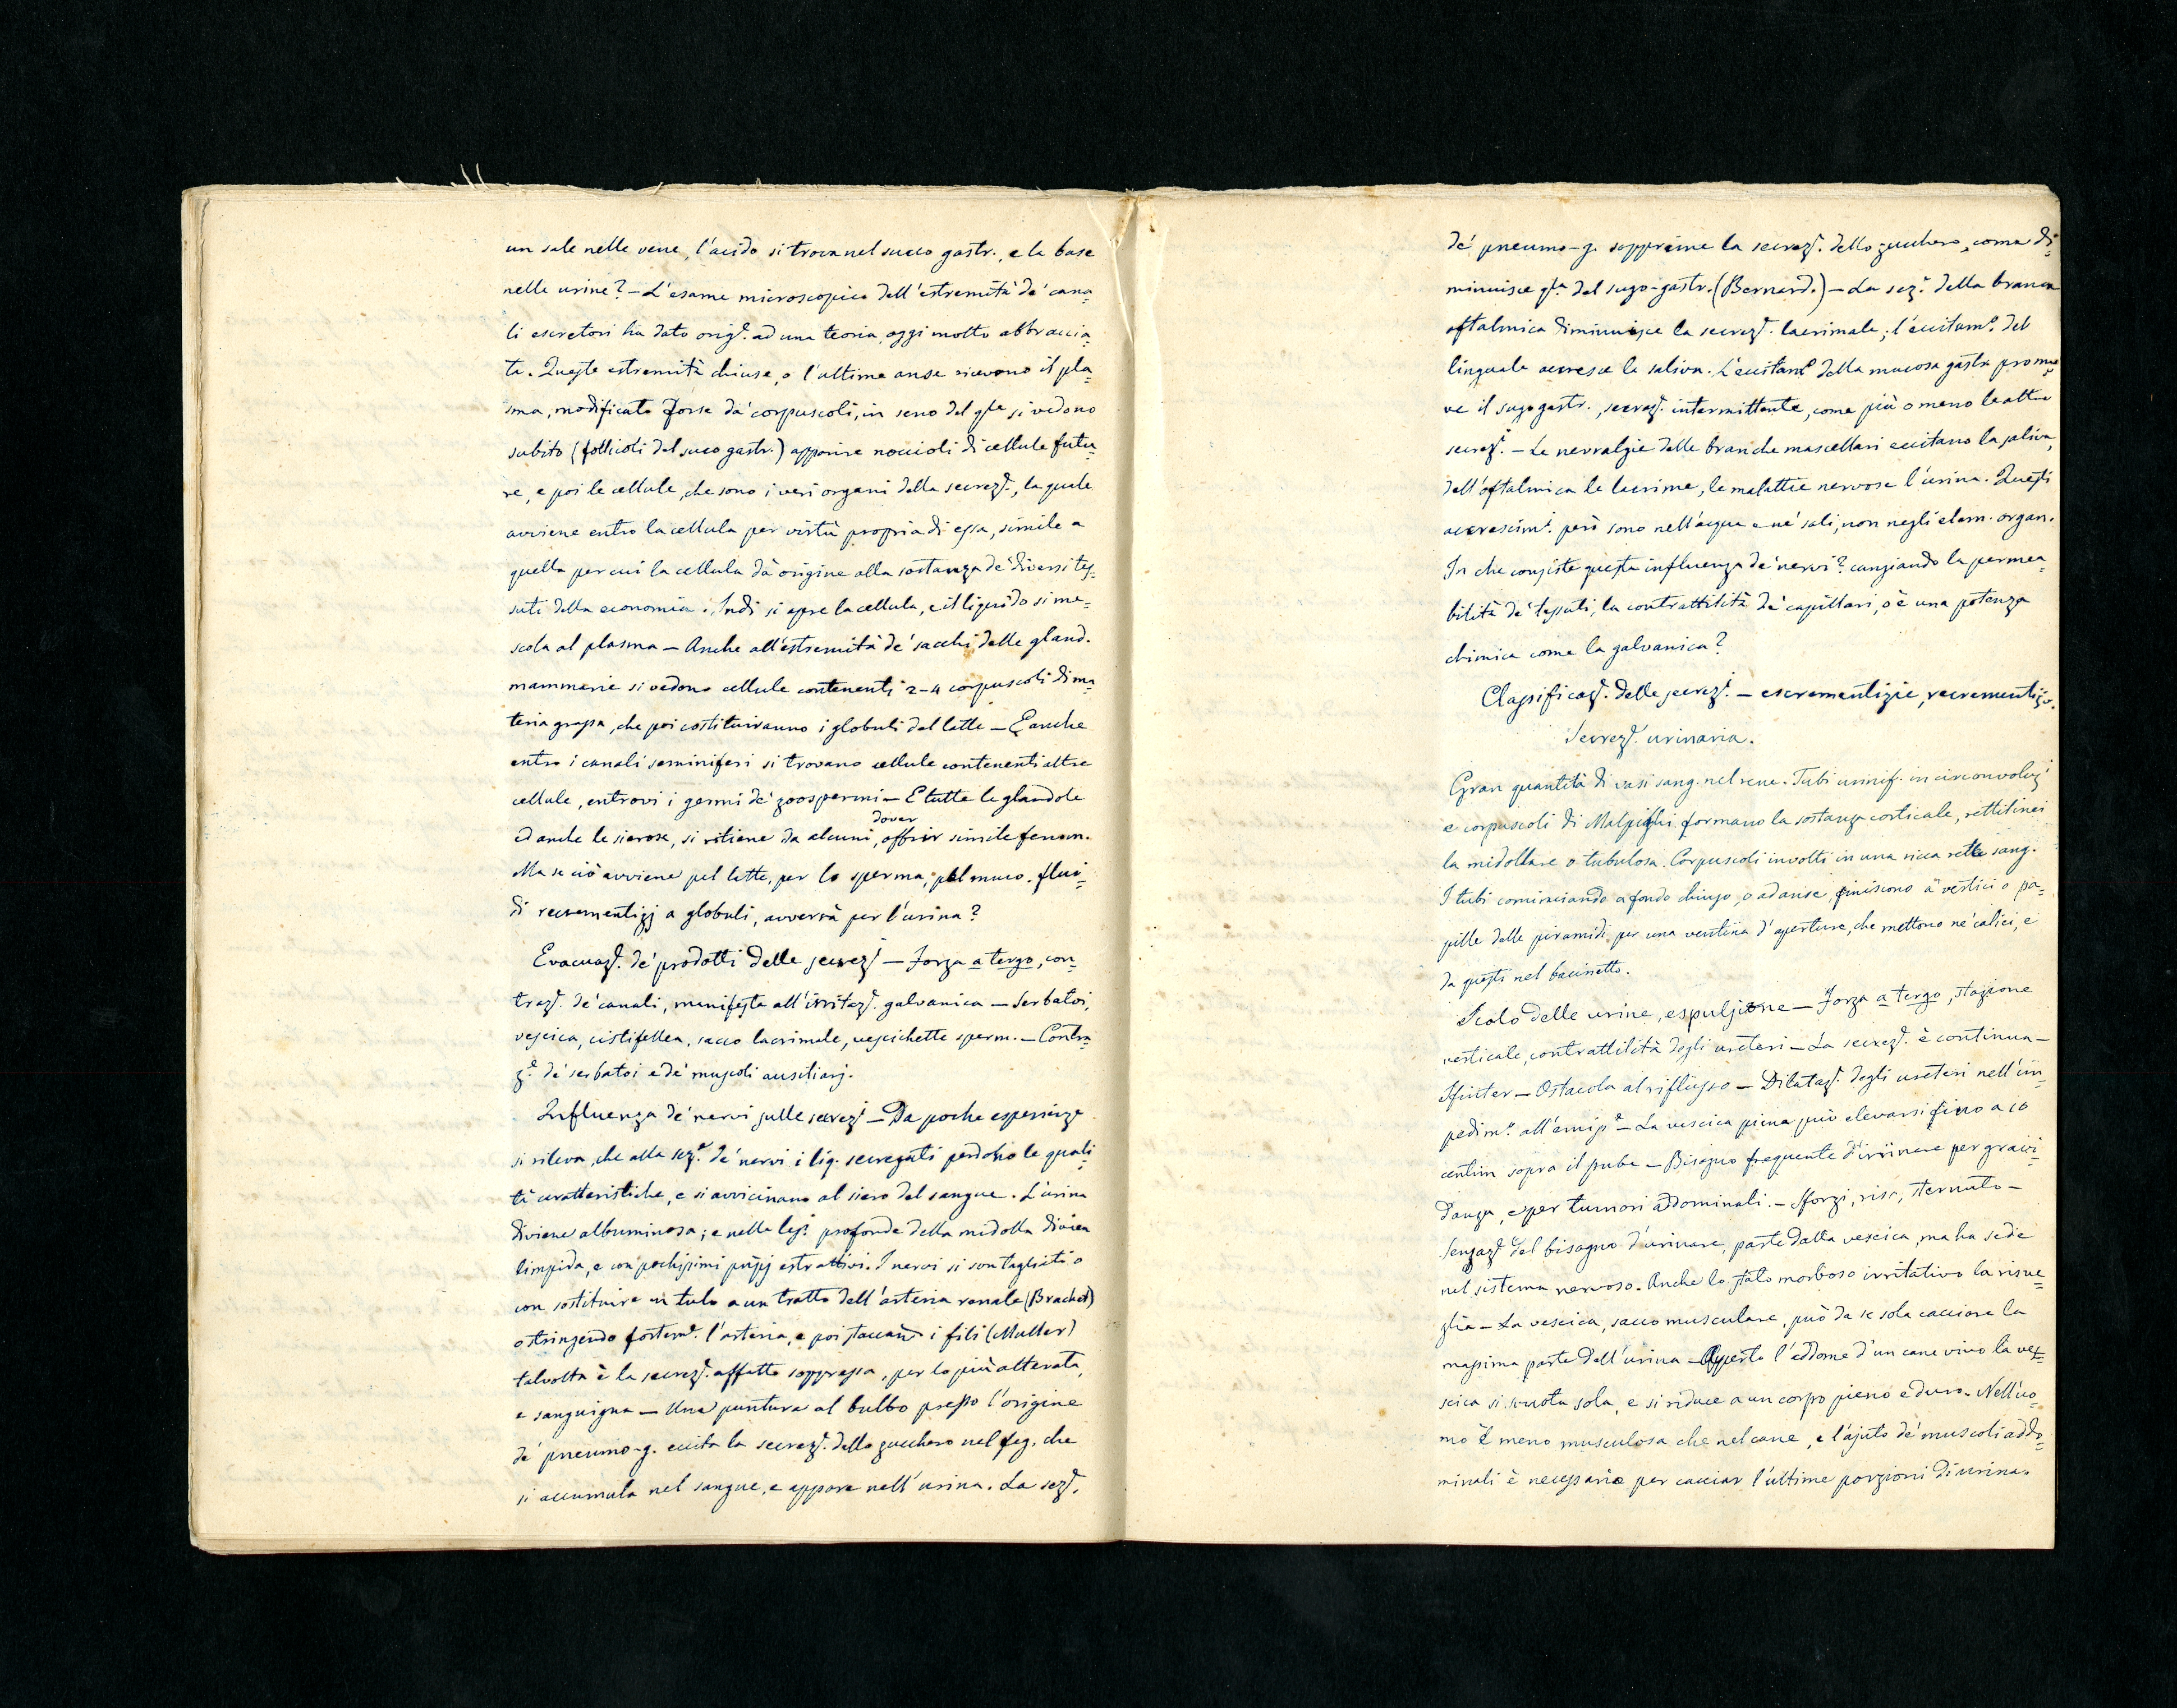 un sale nelle vene, l'acido si trova nel succo gastr., e la base
nelle urine? – L'esame microscopico dell'estremità de' cana=
li escretori ha dato orig.e ad una teoria, oggi molto abbraccia=
ta. Queste estremità chiuse, o l'ultime anse ricevono il pla=
sma, modificato forse da' corpuscoli, in seno del qle si vedono
subito (follicoli del suco gastr.) apparire noccioli di cellule futu=
re, e poi le cellule, che sono i veri organi della secrez.e, la quale
avviene entro la cellula per virtù propria di essa, simile a
quella per cui la cellula dà origine alla sostanza de' diversi tes=
suti della economia. Indi si apre la cellula, e il liquido si me=
scola al plasma – Anche all'estremità de' sacchi delle gland.
mammarie si vedono cellule contenenti 2–4 corpuscoli di ma=
teria grassa, che poi costituiranno i globuli del latte – E anche
entro i canali seminiferi si trovano cellule contenenti altre
cellule, entrovi i germi de' zoospermi – E tutte le glandole
ed anche le sierose, si ritiene da alcuni, dover offrir simile fenom.
Ma se ciò avviene pel latte, per lo sperma, pel muco. flui=
di recrementizj a globuli, avverrà per l'urina?
Evacuaz.e de' prodotti delle secrez.i – Forza a tergo, con=
traz.e de' canali, manifesta all'irritaz.e galvanica – Serbatoi,
vescica, cistifellea, sacco lacrimale, vescichette sperm. – Contra
z.e de' serbatoi e de' muscoli ausiliarj.
Influenza de' nervi sulle secrez.i – Da poche esperienze
si rileva, che alla sez.e de' nervi i liq. secregati perdono le quali=
tà caratteristiche, e si avvicinano al siero del sangue. L'urina
diviene albuminosa; e nelle les.i profonde della midolla divien
limpida, e con pochissimi prîpj estrattivi. I nervi si son tagliati o
con sostituire un tubo a un tratto dell'arteria renale (Brachet)
o stringendo fortem.e l'arteria, e poi staccarne i fili (Muller)
talvolta è la secrez.e affatto soppressa, per lo più alterata,
e sanguigna – Una puntura al bulbo presso l'origine
de' pneumo-g. eccita la secrez.e dello zucchero nel feg. che
si accumula nel sangue, e appare nell'urina. La sez.e
de' pneumo-g. sopprime la secrez.e dello zucchero, come di=
minuisce qla del sugo-gastr. (Bernard.) – La sez.e della branca
oftalmica diminuisce la secrez.e lacrimale; l'eccitam.o del
linguale accresce la saliva. L'eccitam.o della mucosa gastr. promuo=
ve il sugo gastr., secrez.e intermittente, come più o meno le altre
secrez.i – Le nevralgie delle branche mascellari eccitano la saliva,
dell'oftalmica le lacrime, le malattie nervose l'urina. Questi
accrescim.i però sono nell'acqua e ne' sali, non negli elem. organ.
In che consiste questa influenza de' nervi? cangiando la permea=
bilità de' tessuti, la contrattilità de' capillari, o è una potenza
chimica come la galvanica?
Classificaz.e delle secrez.i – escrementizie, recrementizie.
Secrez.e urinaria.
Gran quantità di vasi sang. nel rene. Tubi urinif. in circonvoluz.i
e corpuscoli di Malpighi formano la sostanza corticale, rettilinei
la midollare o tubulosa. Corpuscoli involti in una ricca rette sang.
I tubi cominciando a fondo chiuso, o ad anse, finiscono a' vertici o pa=
pille delle piramidi per una ventina d'aperture, che mettono ne' calici, e
da questi nel bacinetto.
Scolo delle urine, espulsione – Forza a tergo, stazione
verticale, contrattilità degli ureteri – La secrez.e è continua –
Sfinter – Ostacolo al riflusso – Dilataz.e degli ureteri nell'im=
pedim.o all'emiss.e – La vescica piena può elevarsi fino a 10
centim sopra il pube – Bisogno frequente d'urinare per gravi=
danza, e per tumori addominali. – Sforzi, riso, sternuto –
Senzaz.e del bisogno d'urinare, parte dalla vescica, ma ha sede
nel sistema nervoso. Anche lo stato morboso irritativo la risve=
glia – La vescica, sacco musculare, può da se sola cacciare la
massima parte dell'urina – Aperto l'addome d'un cane vivo la ves=
scica si svuota sola, e si riduce a un corpo pieno e duro. Nell'uo=
mo è meno musculosa che nel cane, e l'ajuto de' muscoli addo=
minali è necessario per cacciar l'ultime porzioni di urina.